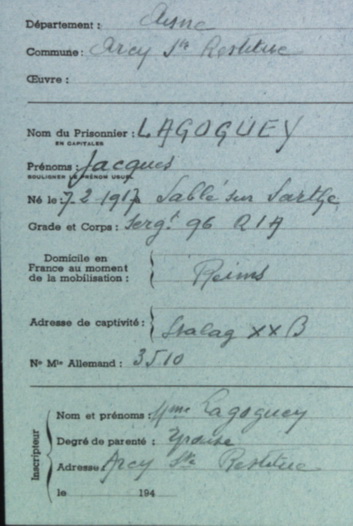 Département : Aisne
Commune : Arcy Ste Restitue
Œuvre :
Nom du Prisonnier : LAGOGUEY
EN CAPITALES
Prénoms : Jacques
SOULIGNER LE PRÉNOM USUEL
Né le : 7.2.1917 Sablé sur Sarthe
Grade et Corps : Sergt 96 RIA
Domicile en
France au moment
de la mobilisation : Reims
Adresse de captivité : Stalag XXB
No Mle Allemand : 3510
Inscripteur
Nom et prénoms : Mme Lagoguey
Degré de parenté :
Adresse : Arcy Ste Restitue
le 194